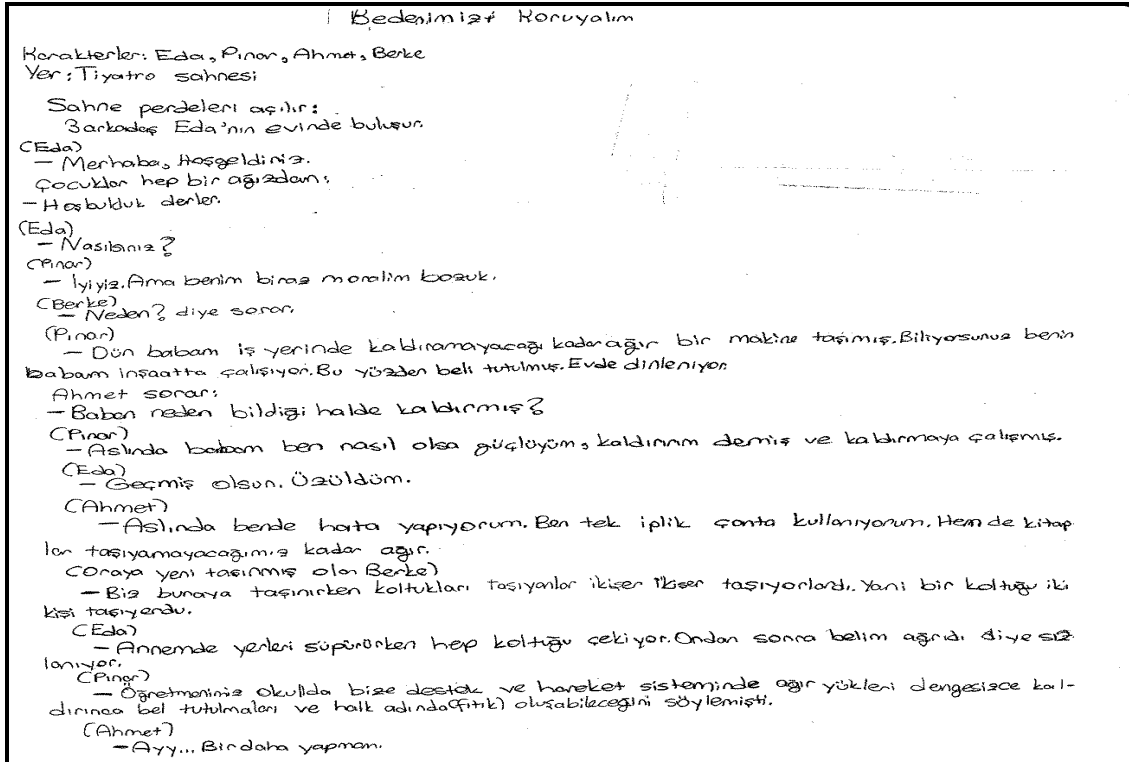 Bedenimizi Koruyalım
Karakterler: Eda, Pınar, Ahmet, Berke
Yer: Tiyatro sahnesi
Sahne perdeleri açılır:
3 arkadaş Eda'nın evinde buluşur.
(Eda)
— Merhaba, Hoşgeldiniz.
Çocuklar hep bir ağızdan:
— Hoşbulduk derler.
(Eda)
— Nasılsınız?
(Pınar)
— İyiyiz. Ama benim biraz moralim bozuk.
(Berke)
— Neden? diye sorar.
(Pınar)
— Dün babam iş yerinde kaldıramayacağı kadar ağır bir makine taşımış. Biliyorsunuz benim
babam inşaatta çalışıyor. Bu yüzden beli tutulmuş. Evde dinleniyor.
Ahmet sorar:
— Baban neden bildiği halde kaldırmış?
(Pınar)
— Aslında babam ben nasıl olsa güçlüyüm, kaldırırım demiş ve kaldırmaya çalışmış.
(Eda)
— Geçmiş olsun. Üzüldüm.
(Ahmet)
— Aslında bende hata yapıyorum. Ben tek iplik çanta kullanıyorum. Hem de kitap
lar taşıyamayacağımız kadar ağır.
(Oraya yeni taşınmış olan Berke)
— Biz buraya taşınırken koltukları taşıyanlar ikişer ikişer taşıyorlardı. Yani bir koltuğu iki
kişi taşıyordu.
(Eda)
— Annemde yerleri süpürürken hep koltuğu çekiyor. Ondan sonra belim ağrıdı diye sız
lanıyor.
(Pınar)
— Öğretmenimiz okulda bize destek ve hareket sisteminde ağır yükleri dengesizce kal-
dırınca bel tutulmaları ve halk adında (fıtık) oluşabileceğini söylemişti.
(Ahmet)
— Ayy... Bir daha yapmam.